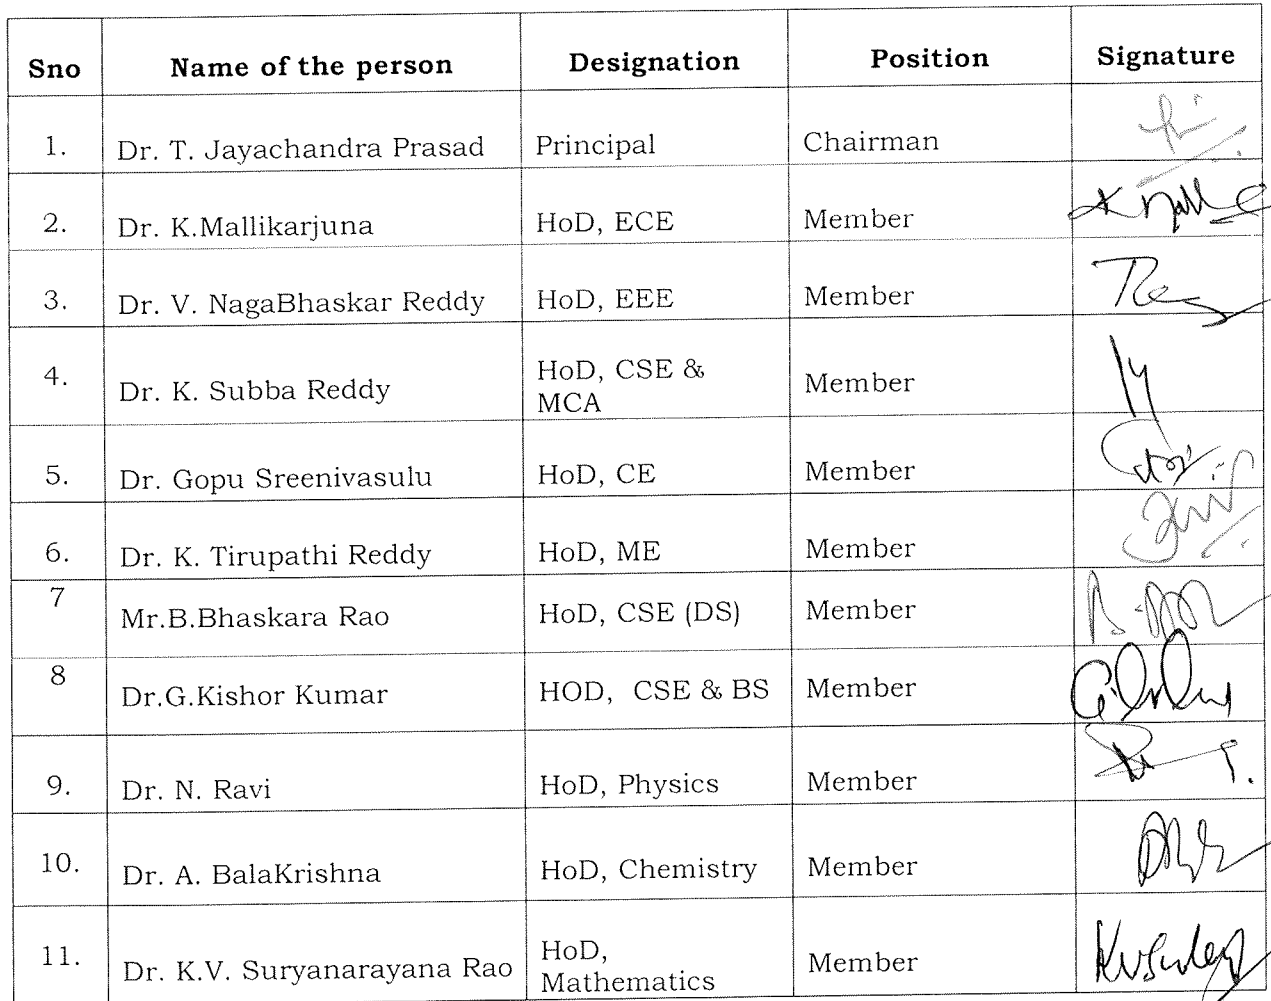 Sno Name of the person Designation Position Signature
1. Dr. T. Jayachandra Prasad Principal Chairman
2. Dr. K.Mallikarjuna HoD, ECE Member
3. Dr. V. NagaBhaskar Reddy HoD, EEE Member
4. Dr. K. Subba Reddy HoD, CSE & Member
MCA
5. Dr. Gopu Sreenivasulu HoD, CE Member
6. Dr. K. Tirupathi Reddy HoD, ME Member
7 Mr.B.Bhaskara Rao HoD, CSE (DS) Member
8 Dr.G.Kishor Kumar HOD, CSE & BS Member
9. Dr. N. Ravi HoD, Physics Member
10. Dr. A. BalaKrishna HoD, Chemistry Member
11. Dr. K.V. Suryanarayana Rao HoD, Member
Mathematics